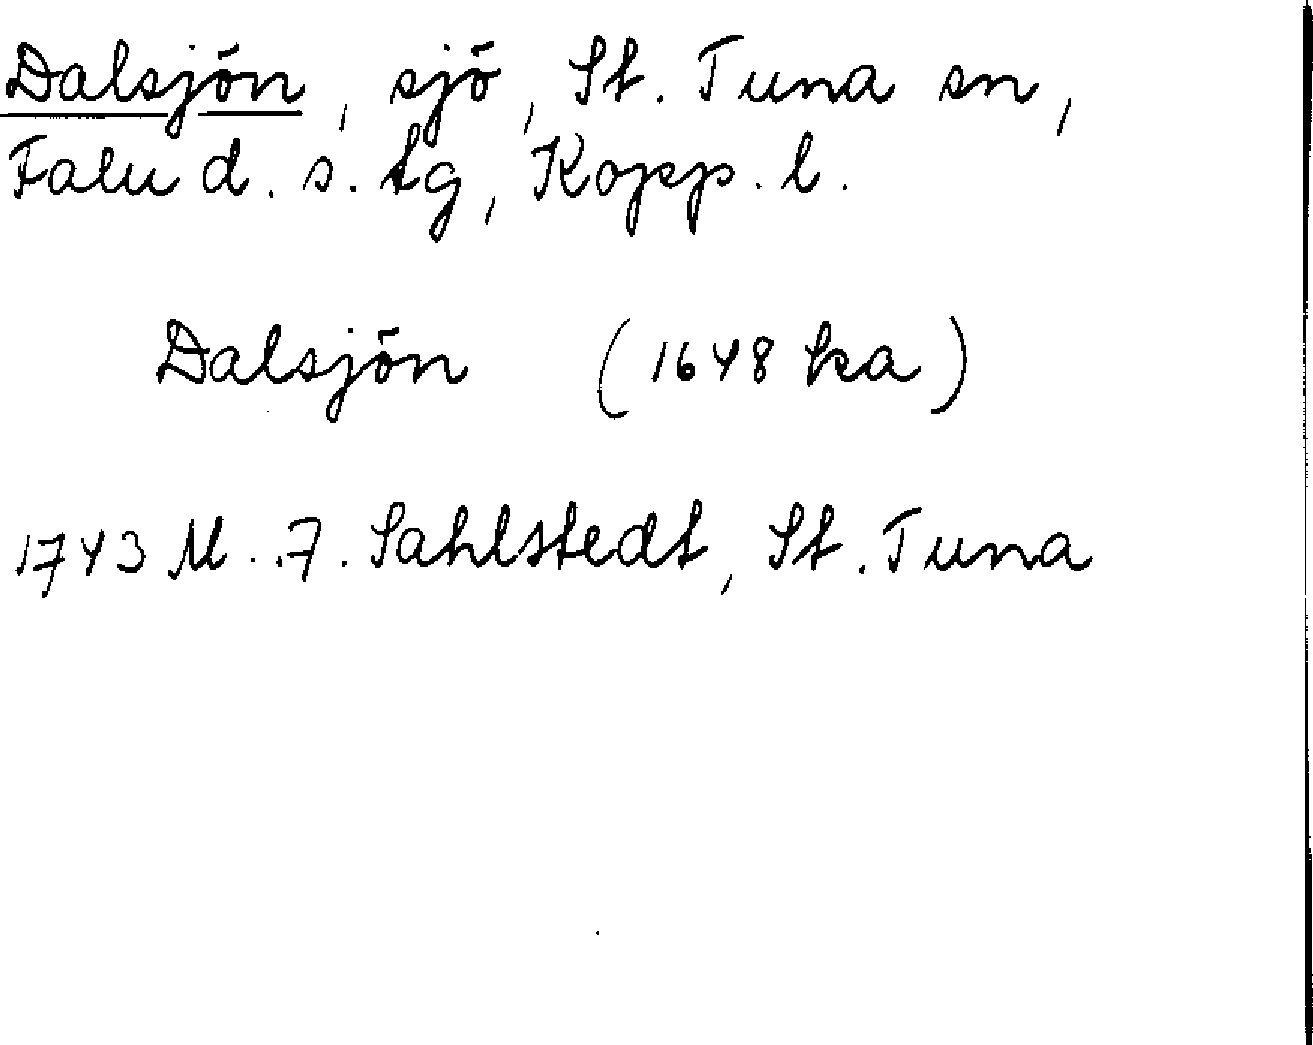 Dalsjön, sjö, St. Tuna sn,
Falu d. s. tg, Kopp. l.
Dalsjön (1648 ka)
1743 M. F. Sahlstedt, St. Tuna